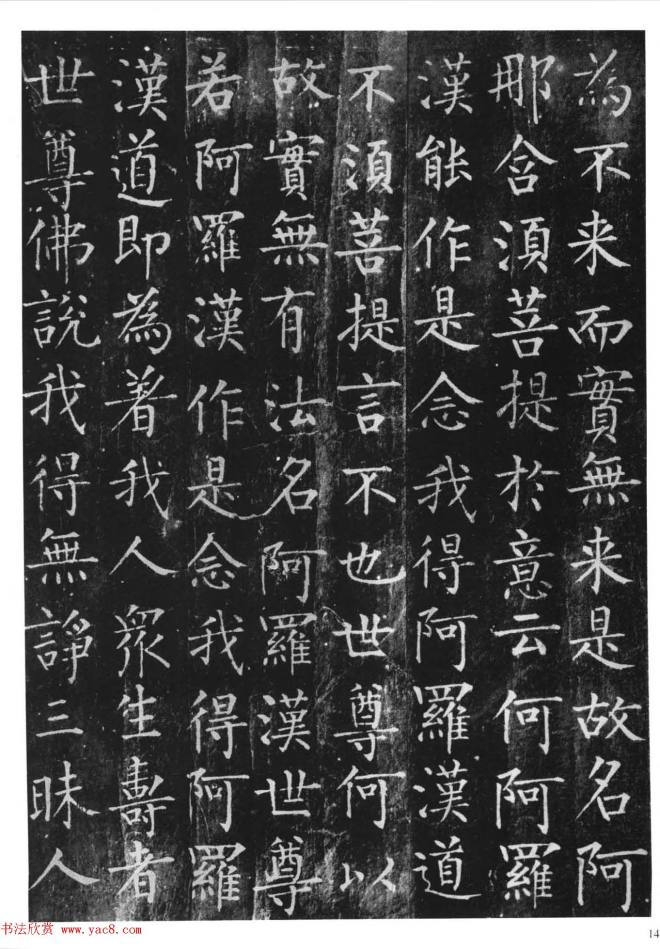 為不来而實無来是故名阿
那含須菩提於意云何阿羅
漢能作是念我得阿羅漢道
不須菩提言不也世尊何以
故實無有法名阿羅漢世尊
若阿羅漢作是念我得阿羅
漢道即為著我人眾生壽者
世尊佛說我得無諍三昧人
书法欣赏 www.yac8.com
14